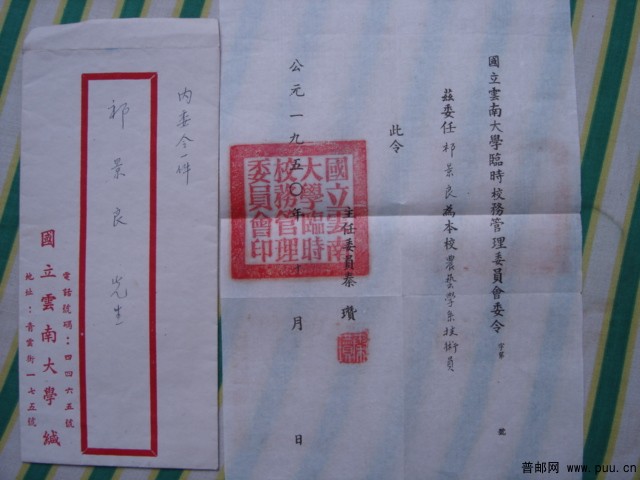 國立雲南大學臨時校務管理委員會委令 字第 號
茲委任 祁景良 為本校農藝學系技術員
此令
主任委員秦瓚
公元一九五〇年十月 日
國立雲南
大學臨時
校務管理
委員會印
內委令一件
祁景良 先生
國立雲南大學緘
電話號碼：四四六五號
地址：青雲街一七五號
普邮网 www.puu.cn